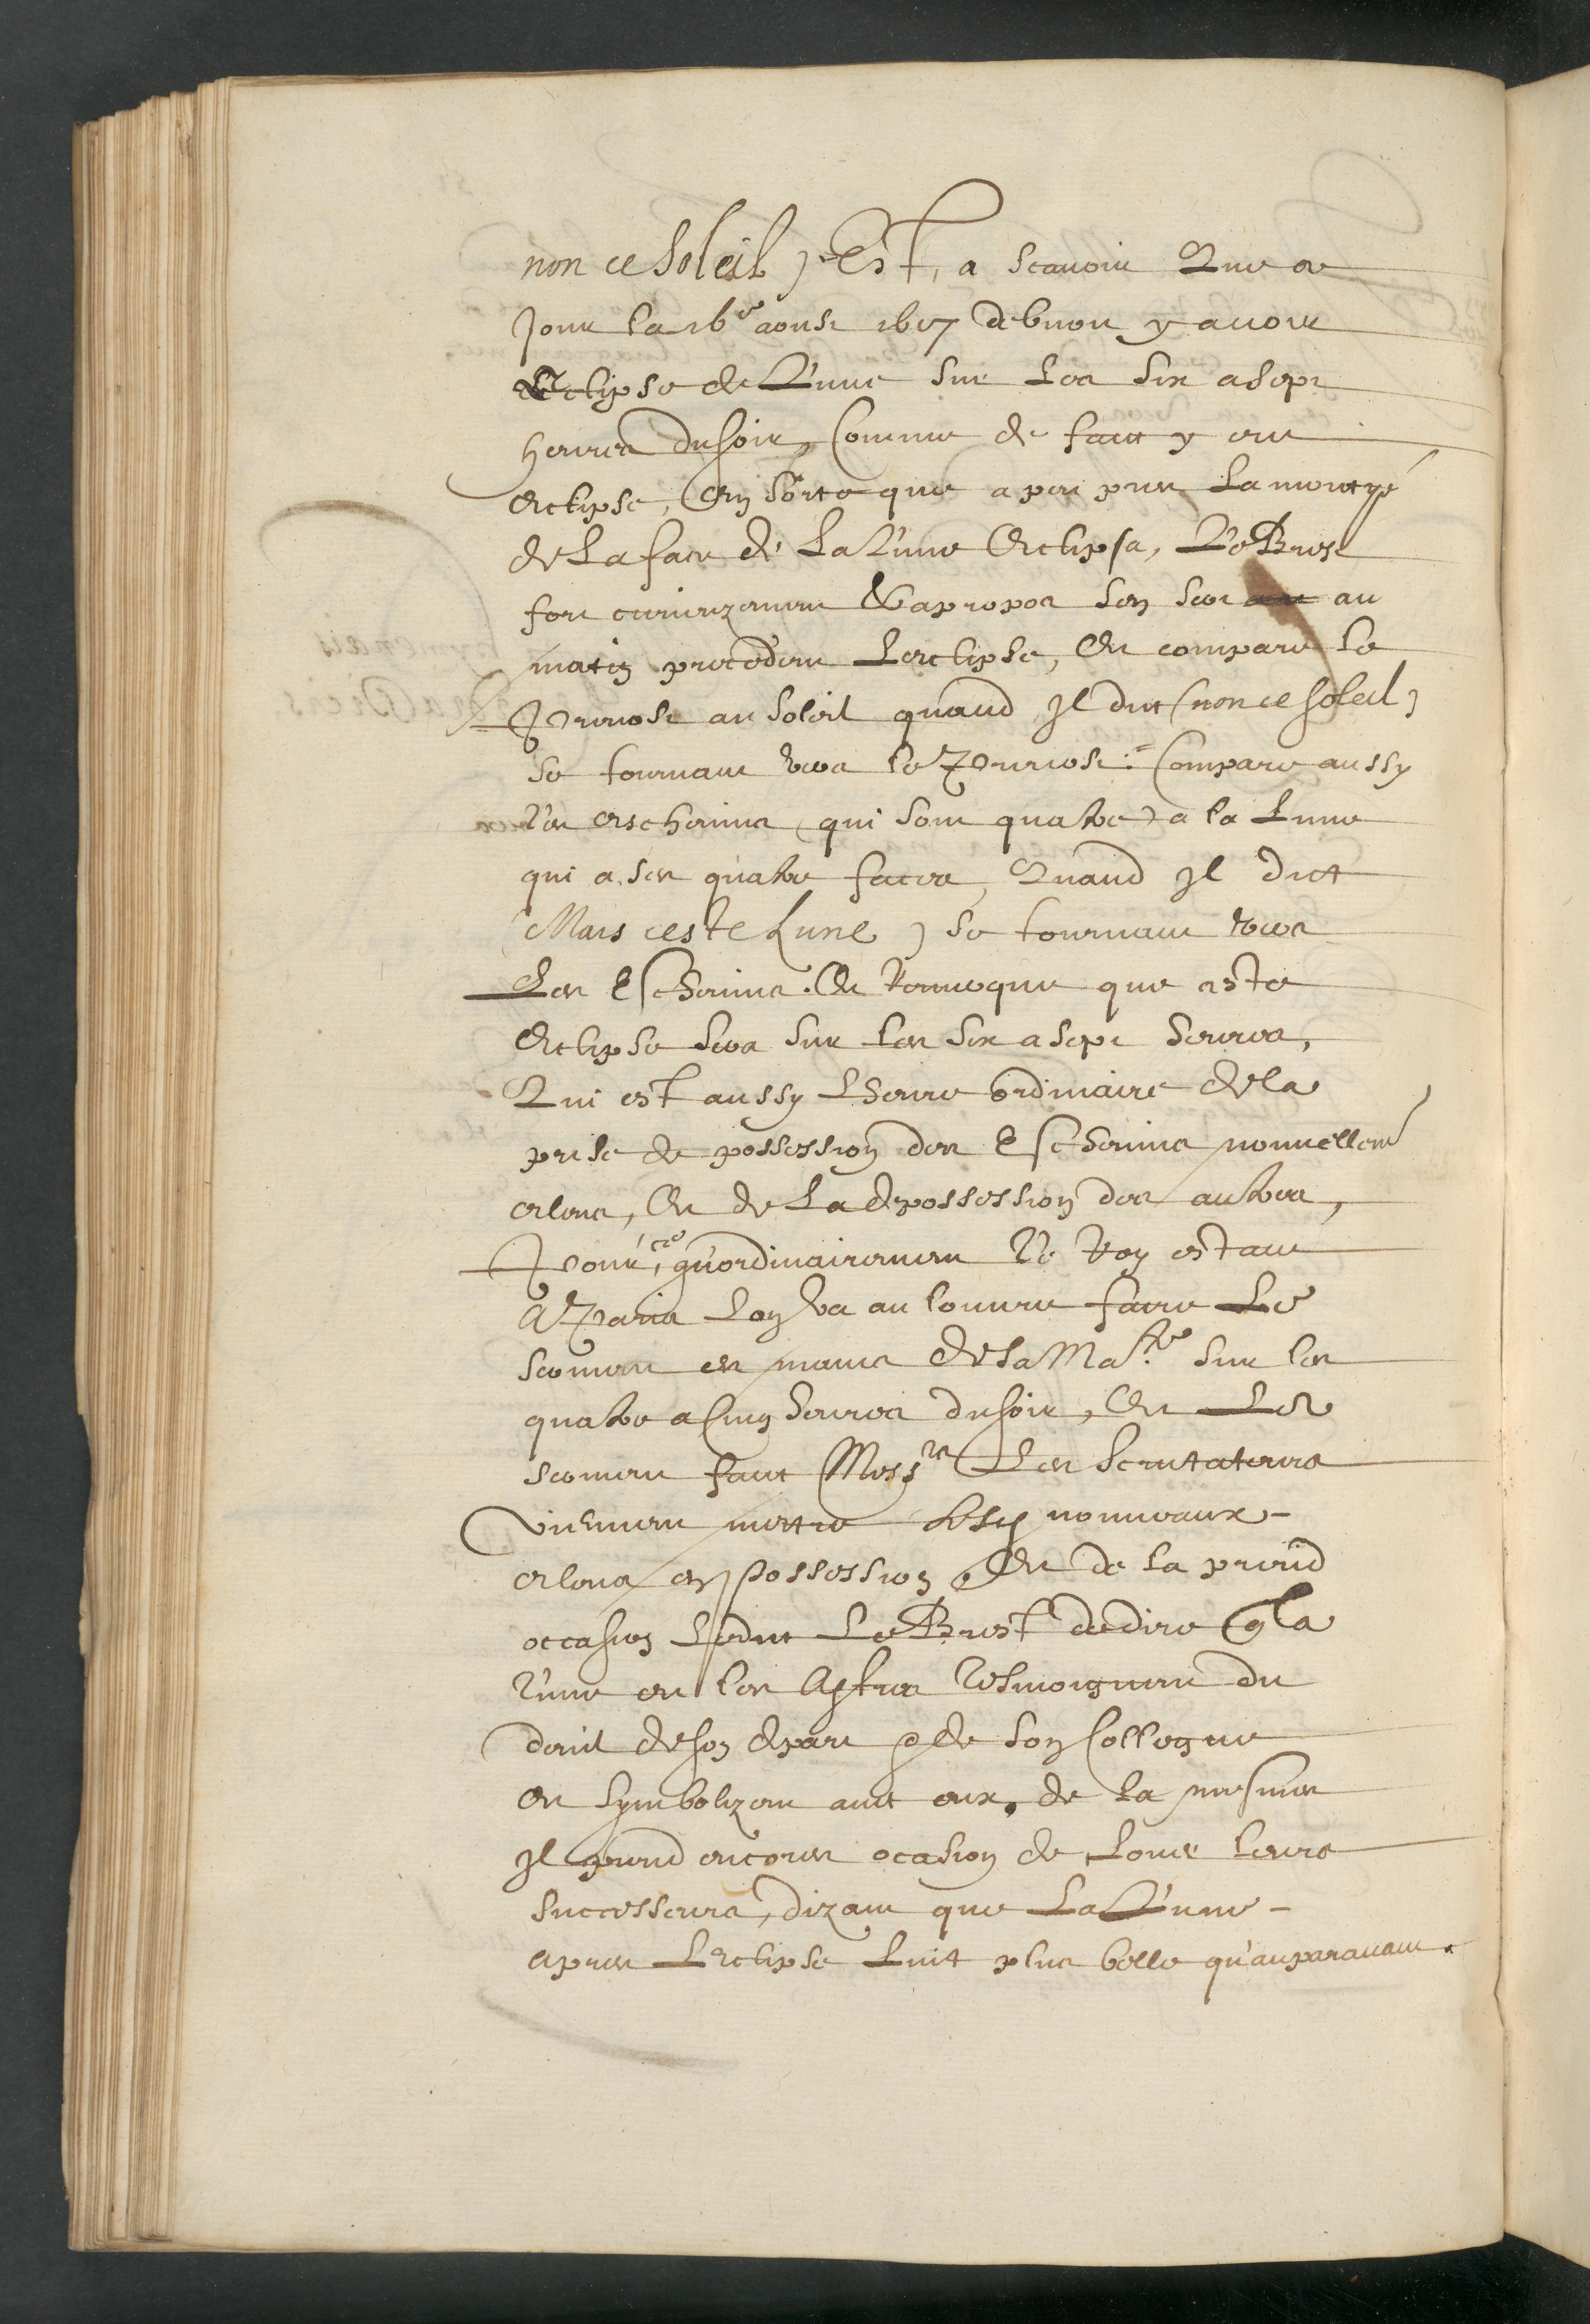 non ce soleil) Est, a scavoir Que ce
Jour la 16e aoust 1617 debvoit y avoir
Eclipse de Lune sur Les six a sept
heures du soir, Comme de faict y eut
eclipse, En sorte que a peu pres La moityé
de La face de La Lune Eclipsa, Le Brest
fort curieuzement & apropos s'en sert au
matin precedent Leclipse, Et compare le
Prevost au soleil quand Il dict (non ce soleil)
se tournant vers le Prevost: Compare aussy
Les eschevins (qui sont quatre) a la Lune
qui a ses quatre faces, Quand Il dict
(Mais ceste Lune) se tournant vers
Les Eschevins. Et remarque que ceste
Eclipse sera sur les six a sept heures,
Qui est aussy Lheure ordinaire de la
prise de possession des Eschevins nouvellemt
esleus, Et de La depossession des autres,
Pour ce qu'ordinairement Le Roy estant
A Paris Lon va au louvre faire Le
serment es mains de sa Ma.te sur les
quatre a Cinq heures du soir, Et Le
serment faict Messrs Les scrutateurs
viennent mettre lesd nouveaux
esleus en possession, Et de la prend
occasion Ledict Le Brest de dire q la
Lune et les Astres tesmoignent du
dueil de son depart & de son Collegue
en symbolizant avec eux, de la mesmes
Il prend encores ocasion de Louer leurs
successeurs, dizant que La Lune
apres LEclipse Luit plus belle qu'auparavant.